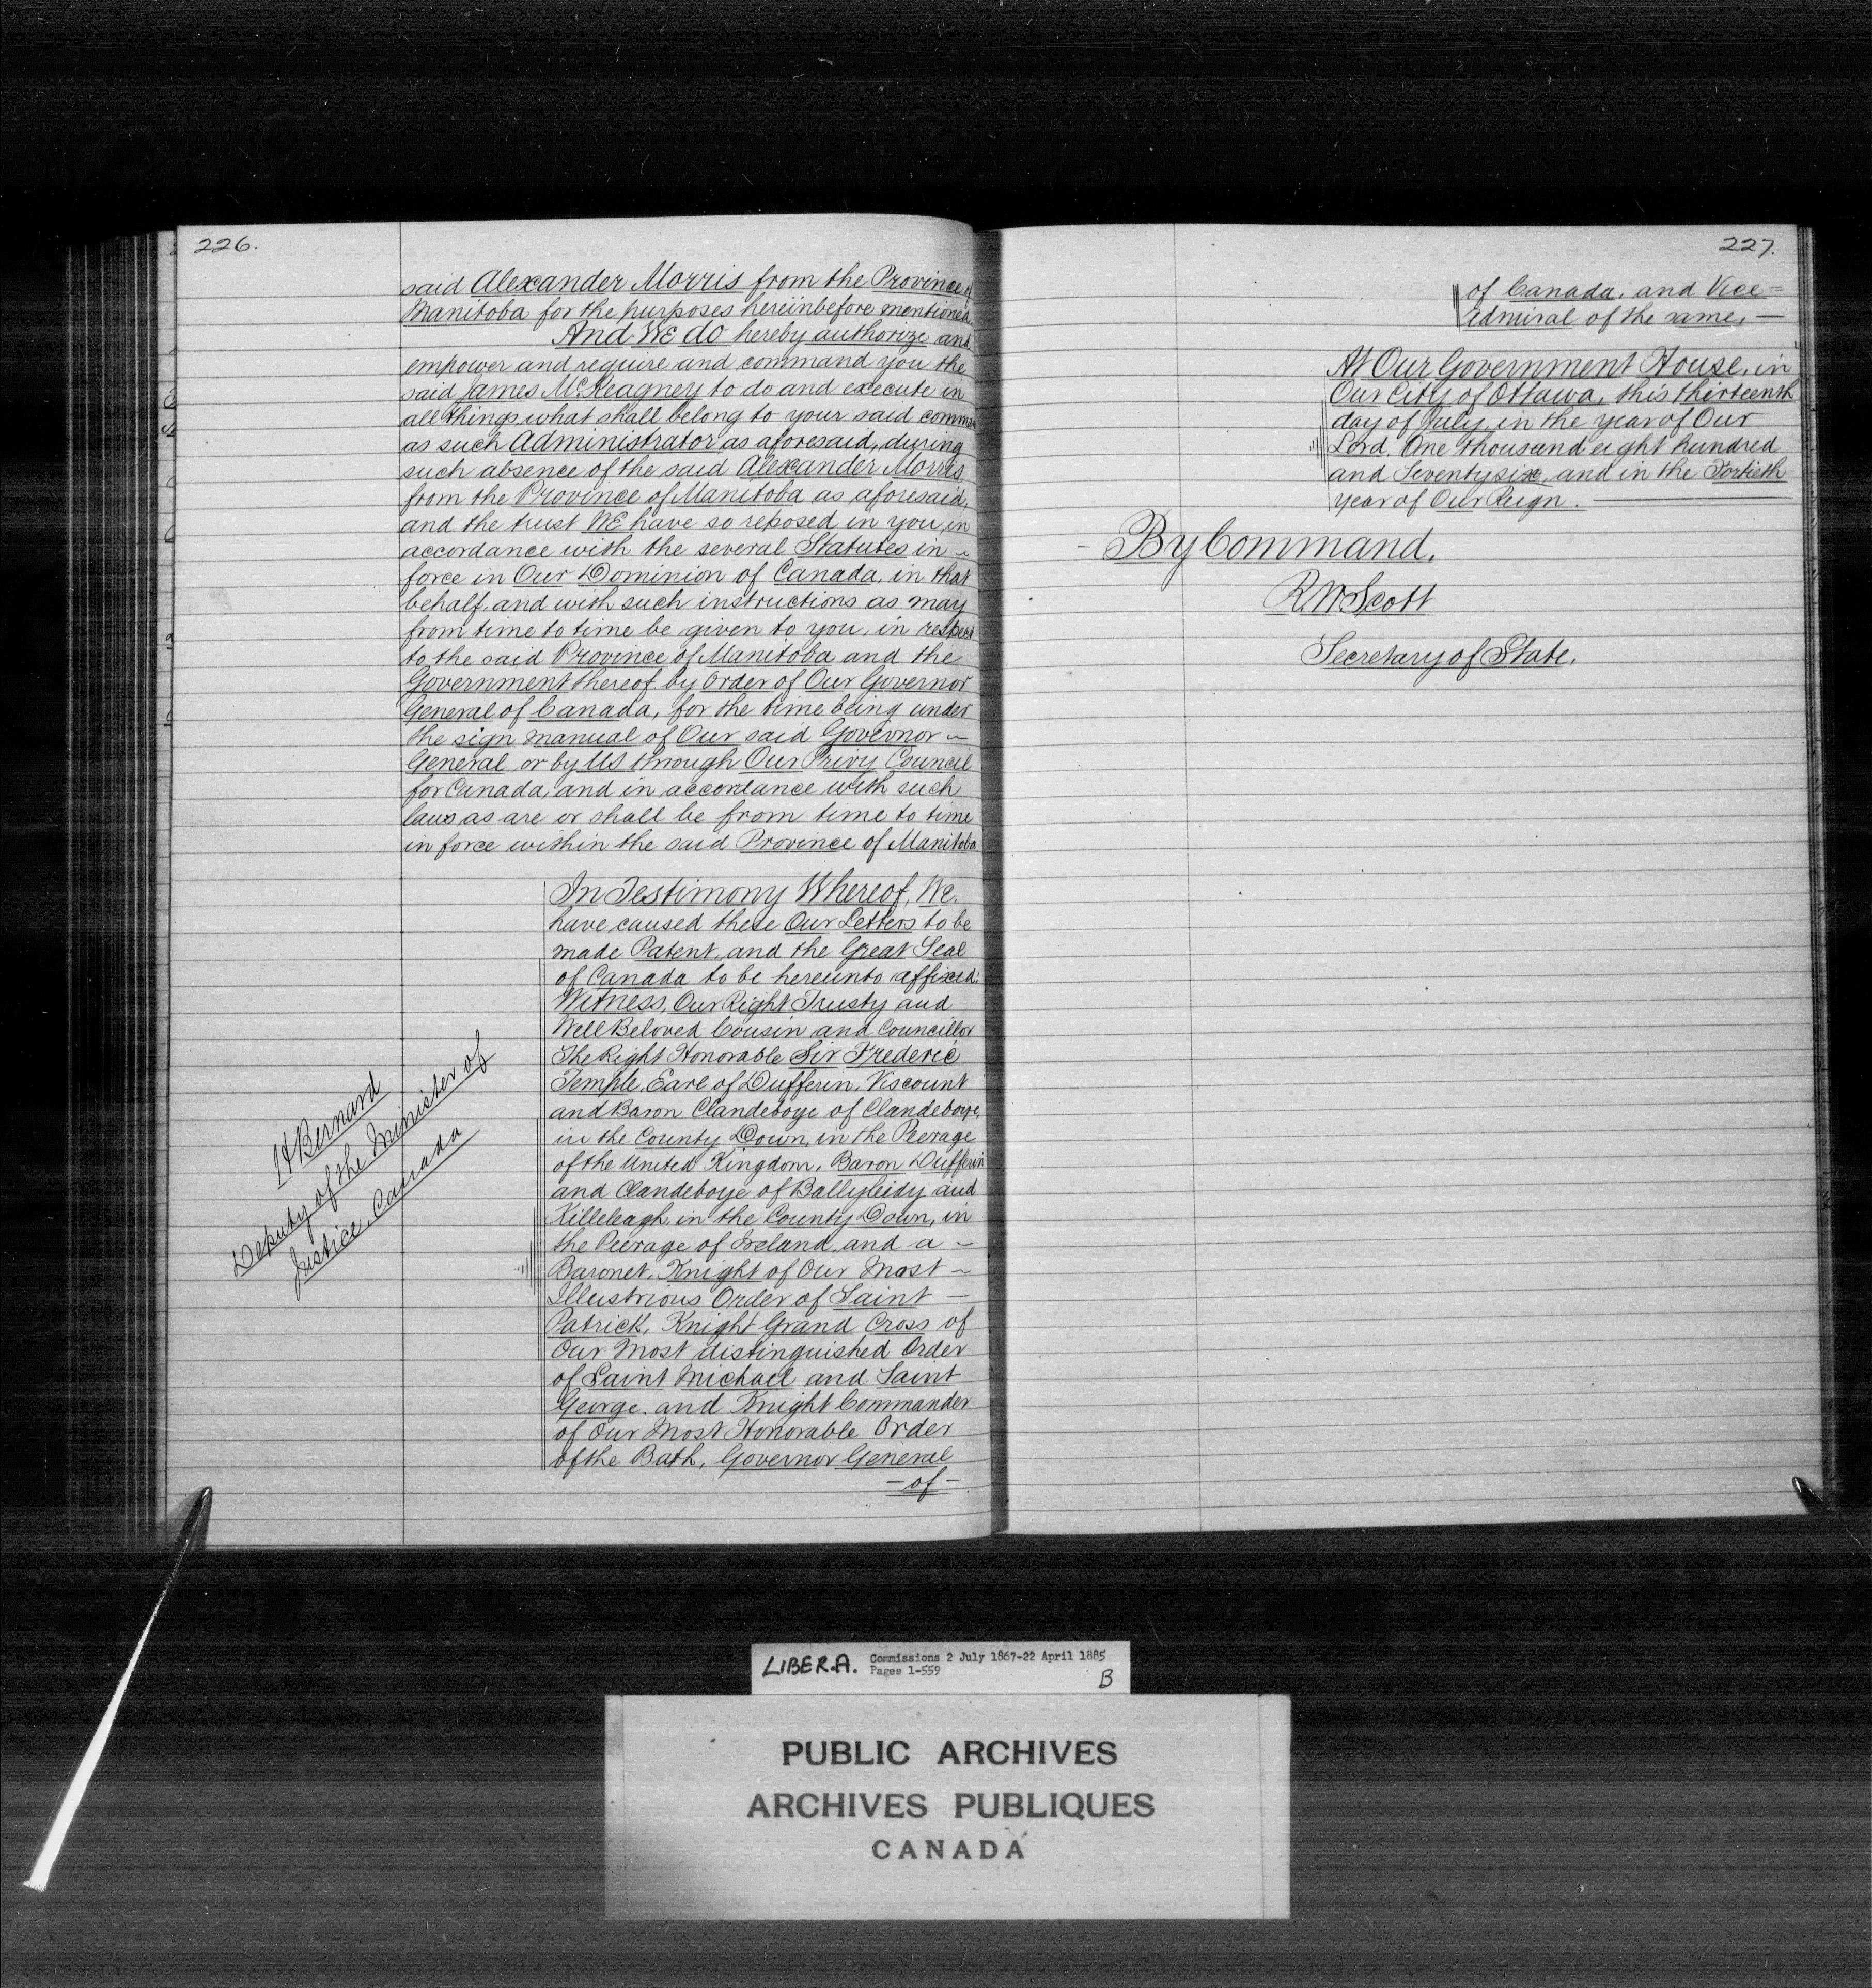 226.
said Alexander Morris from the Province of
Manitoba for the purposes hereinbefore mentioned.
And WE do hereby authorize and
empower and require and command you the
said James McKeagney to do and execute in
all things what shall belong to your said
as such Administrator as aforesaid, during
such absence of the said Alexander Morris
from the Province of Manitoba as aforesaid,
and the trust WE have so reposed in you, in
accordance with the several Statutes in ~
force in Our Dominion of Canada, in that
behalf, and with such instructions as may
from time to time be given to you, in respect
to the said Province of Manitoba and the
Government thereof by Order of Our Governor
General of Canada, for the time being under
the sign manual of Our said Governor ~
General or by US through Our Privy Council
for Canada, and in accordance with such
laws as are or shall be from time to time
in force within the said Province of Manitoba
In Testimony Whereof, We
have caused these Our Letters to be
made Patent, and the Great Seal
of Canada to be hereunto affixed:
Witness, Our Right Trusty and
Well Beloved Cousin and Councillor
The Right Honorable Sir Frederic
Temple, Earl of Dufferin, Viscount
and Baron Clandeboye of Clandeboye,
in the County Down, in the Peerage
of the United Kingdom, Baron Dufferin
and Clandeboye of Ballyleidy and
Killeleagh, in the County Down, in
the Peerage of Ireland, and a ~
Baronet, Knight of Our Most ~
Illustrious Order of Saint —
Patrick, Knight Grand Cross of
Our Most distinguished Order
of Saint Michael and Saint
George, and Knight Commander
of Our Most Honorable Order
of the Bath, Governor General
- of -
H Bernard
Deputy of the Minister of
Justice, Canada
227.
of Canada, and Vice=
Admiral of the same, —
At Our Government House, in
Our City of Ottawa, this thirteenth
day of July, in the year of Our
Lord, One thousand eight hundred
and Seventy six, and in the Fortieth
year of Our Reign.
- By Command,
R W Scott
Secretary of State.
LIBER.A. Commissions 2 July 1867-22 April 1885
Pages 1-559
B
PUBLIC ARCHIVES
ARCHIVES PUBLIQUES
CANADA